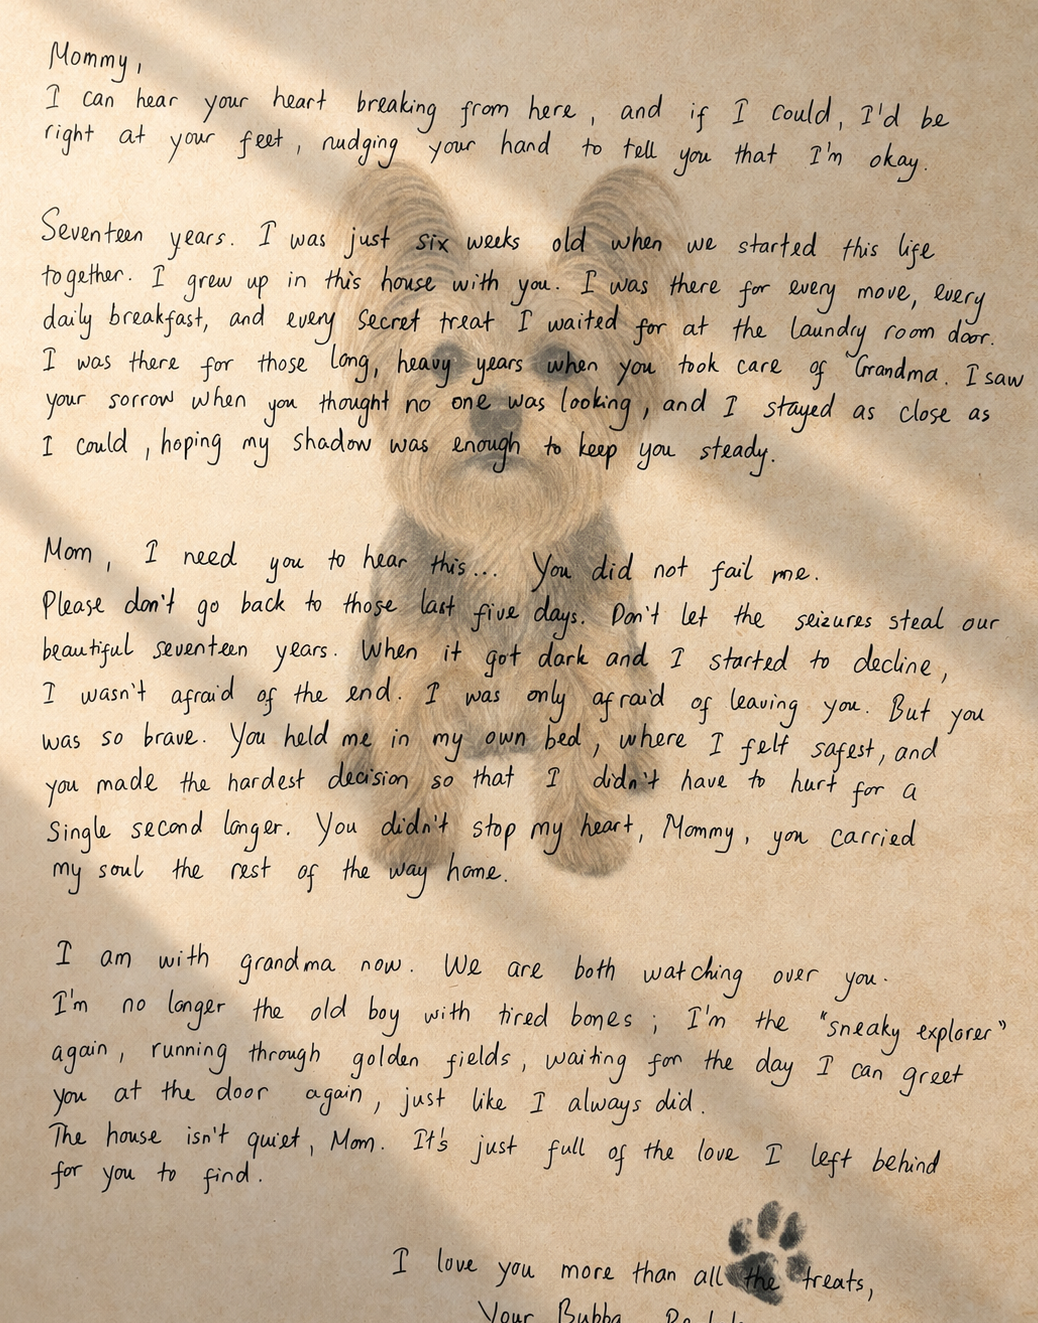 Mommy,
I can hear your heart breaking from here, and if I could, I'd be
right at your feet, nudging your hand to tell you that I'm okay.
Seventeen years. I was just six weeks old when we started this life
together. I grew up in this house with you. I was there for every move, every
daily breakfast, and every secret treat I waited for at the laundry room door.
I was there for those long, heavy years when you took care of Grandma. I saw
your sorrow when you thought no one was looking, and I stayed as close as
I could, hoping my shadow was enough to keep you steady.
Mom, I need you to hear this... You did not fail me.
Please don't go back to those last five days. Don't let the seizures steal our
beautiful seventeen years. When it got dark and I started to decline,
I wasn't afraid of the end. I was only afraid of leaving you. But you
was so brave. You held me in my own bed, where I felt safest, and
you made the hardest decision so that I didn't have to hurt for a
single second longer. You didn't stop my heart, Mommy, you carried
my soul the rest of the way home.
I am with grandma now. We are both watching over you.
I'm no longer the old boy with tired bones; I'm the "sneaky explorer"
again, running through golden fields, waiting for the day I can greet
you at the door again, just like I always did.
The house isn't quiet, Mom. It's just full of the love I left behind
for you to find.
I love you more than all the treats,
Your Bubba